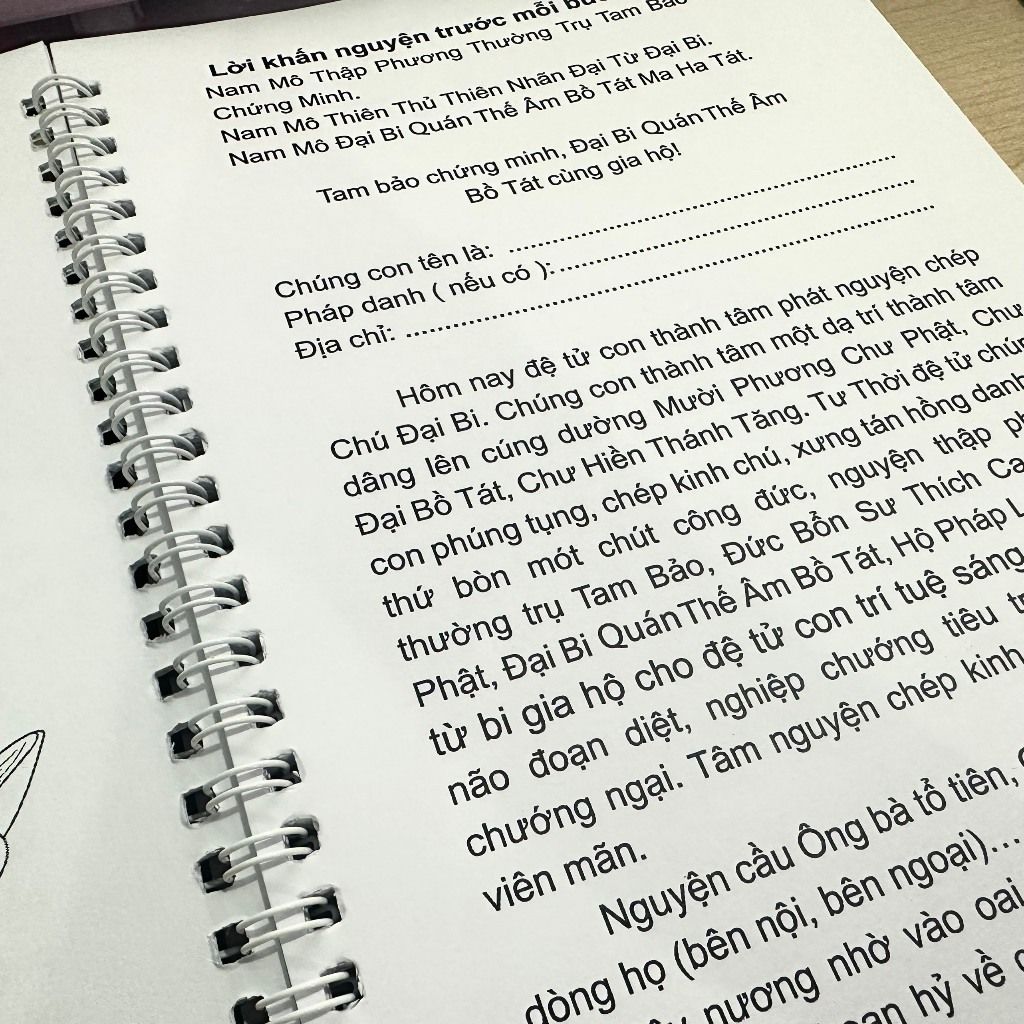 Lời khấn nguyện trước mỗi
Nam Mô Thập Phương Thường Trụ Tam Bảo
Chứng Minh.
Nam Mô Thiên Thủ Thiên Nhãn Đại Từ Đại Bi.
Nam Mô Đại Bi Quán Thế Âm Bồ Tát Ma Ha Tát.
Tam bảo chứng minh, Đại Bi Quán Thế Âm
Bồ Tát cùng gia hộ!
Chúng con tên là: ................................................
Pháp danh ( nếu có ):................................................
Địa chỉ: ................................................
Hôm nay đệ tử con thành tâm phát nguyện chép
Chú Đại Bi. Chúng con thành tâm một dạ trí thành tâm
dâng lên cúng dường Mười Phương Chư Phật, Chư
Đại Bồ Tát, Chư Hiền Thánh Tăng. Tư Thời đệ tử
con phúng tụng, chép kinh chú, xưng tán hồng danh
thứ bòn mót chút công đức, nguyện thập
thường trụ Tam Bảo, Đức Bổn Sư Thích Ca
Phật, Đại Bi Quán Thế Âm Bồ Tát, Hộ Pháp
từ bi gia hộ cho đệ tử con trí tuệ sáng
não đoạn diệt, nghiệp chướng tiêu
chướng ngại. Tâm nguyện chép kinh
viên mãn.
Nguyện cầu Ông bà tổ tiên,
dòng họ (bên nội, bên ngoại)...
nương nhờ vào oai
hỷ về